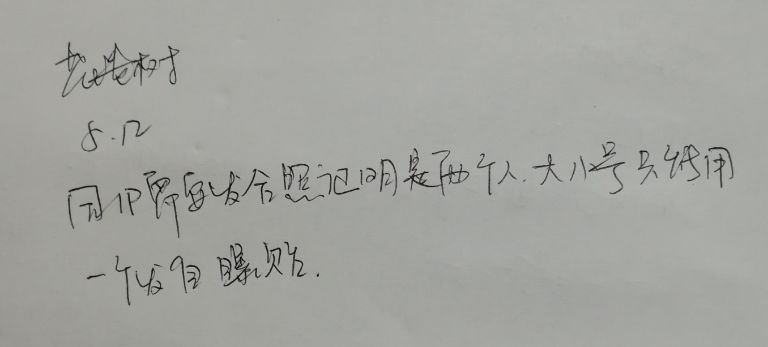 芒果树
5.12
同IP需要发合照证明是两个人.大小号只能用
一个发自曝贴.